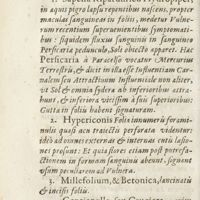 in aquis pigro lapsu repentibus nascens, propter
maculas sanguineas in foliis, medetur Vulne-
rum recentium supervenientibus symptomati-
bus: siquidem fluxus sanguinis in sanguinea
Persicariæ pedunculo, Soli obiecto apparet. Hæc
Persicaria à Paracelso vocatur Mercurius
Terrestris, & dicit in illa esse Influentiam Car-
nalem seu Attractivum Influentiæ non aliter,
ut Sol & omnia sydera ab inferioribus attra-
hunt, & inferiora vicissim à suis superioribus:
Gutta in foliis habent signaturam.
2. Hypericonis Folia innumeris forami-
nulis quasi acu traiectis perforata videntur:
ideò ad omnes externas & internas cutis læsio-
nes prosunt: Et quia flores etiam post putrefa-
ctionem in formam sanguinis abeunt, signum
vulnerarium ad Vulnera.
3. Millefolium, & Betonica, lancinatis
& incisis foliis.